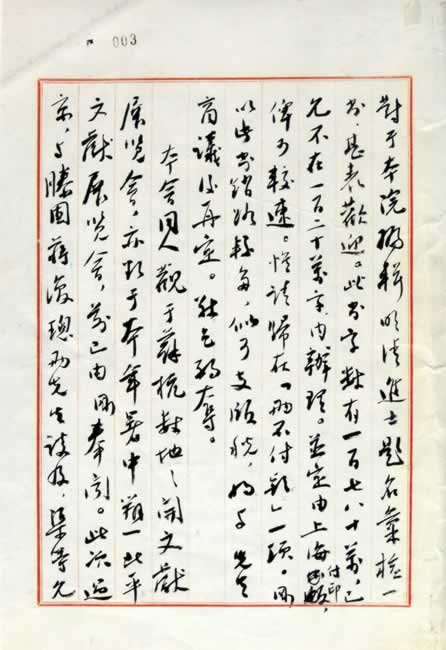 對于本院編輯明清進士題名彙檢一
書，甚表歡迎。此書字數有一百七八十萬，已
允不在一百二十萬字內辦理。並定由上海付印，
俾可較速。惟請歸在「兩不付款」一項，則
以此書銷路較多，似可支版稅，將與先生
商議後再定。
本會同人觀于蘇杭數地之開文獻
展覽會，亦擬于本年暑中辦一北平
文獻展覽會，前已由奉聞。此次返
京，與滕固蔣復璁兩先生談及，渠等允
003